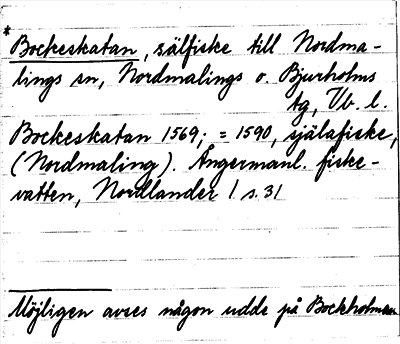 * Bockeskatan, sälfiske till Nordma-
lings sn, Nordmalings o. Bjurholms
tg, Vb. l.
Bockeskatan 1569; = 1590, själafiske,
(Nordmaling). Ångermanl. fiske-
vatten, Nordlander 1 s. 31
Möjligen avses någon udde på Bockholmen